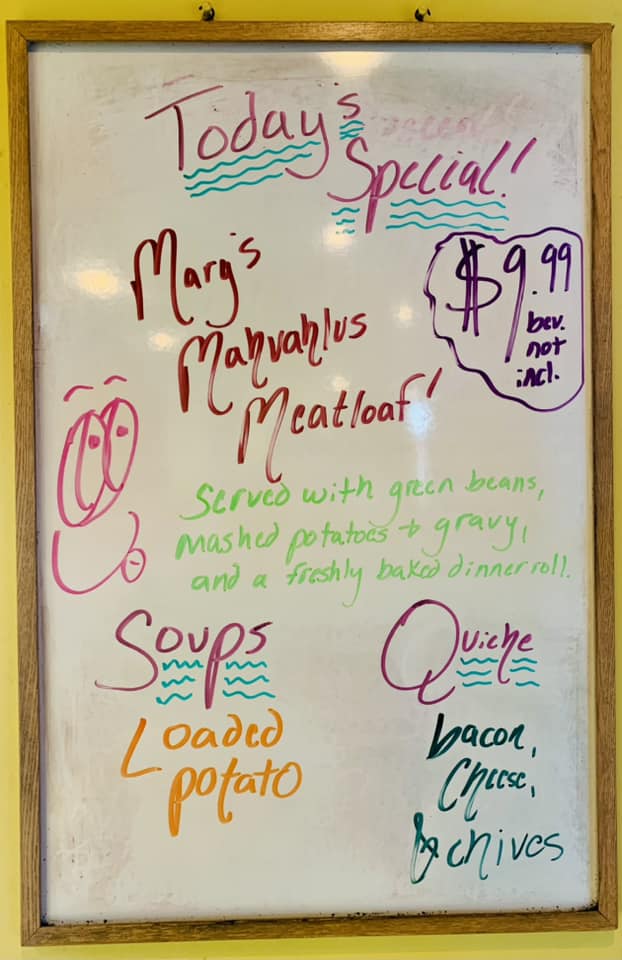 Today's
Special!
Marg's
Mahvahlus
Meatloaf!
$9.99
bev.
not
incl.
Served with green beans,
mashed potatoes + gravy,
and a freshly baked dinner roll.
Soups
Loaded
potato
Quiche
bacon,
Cheese,
& chives